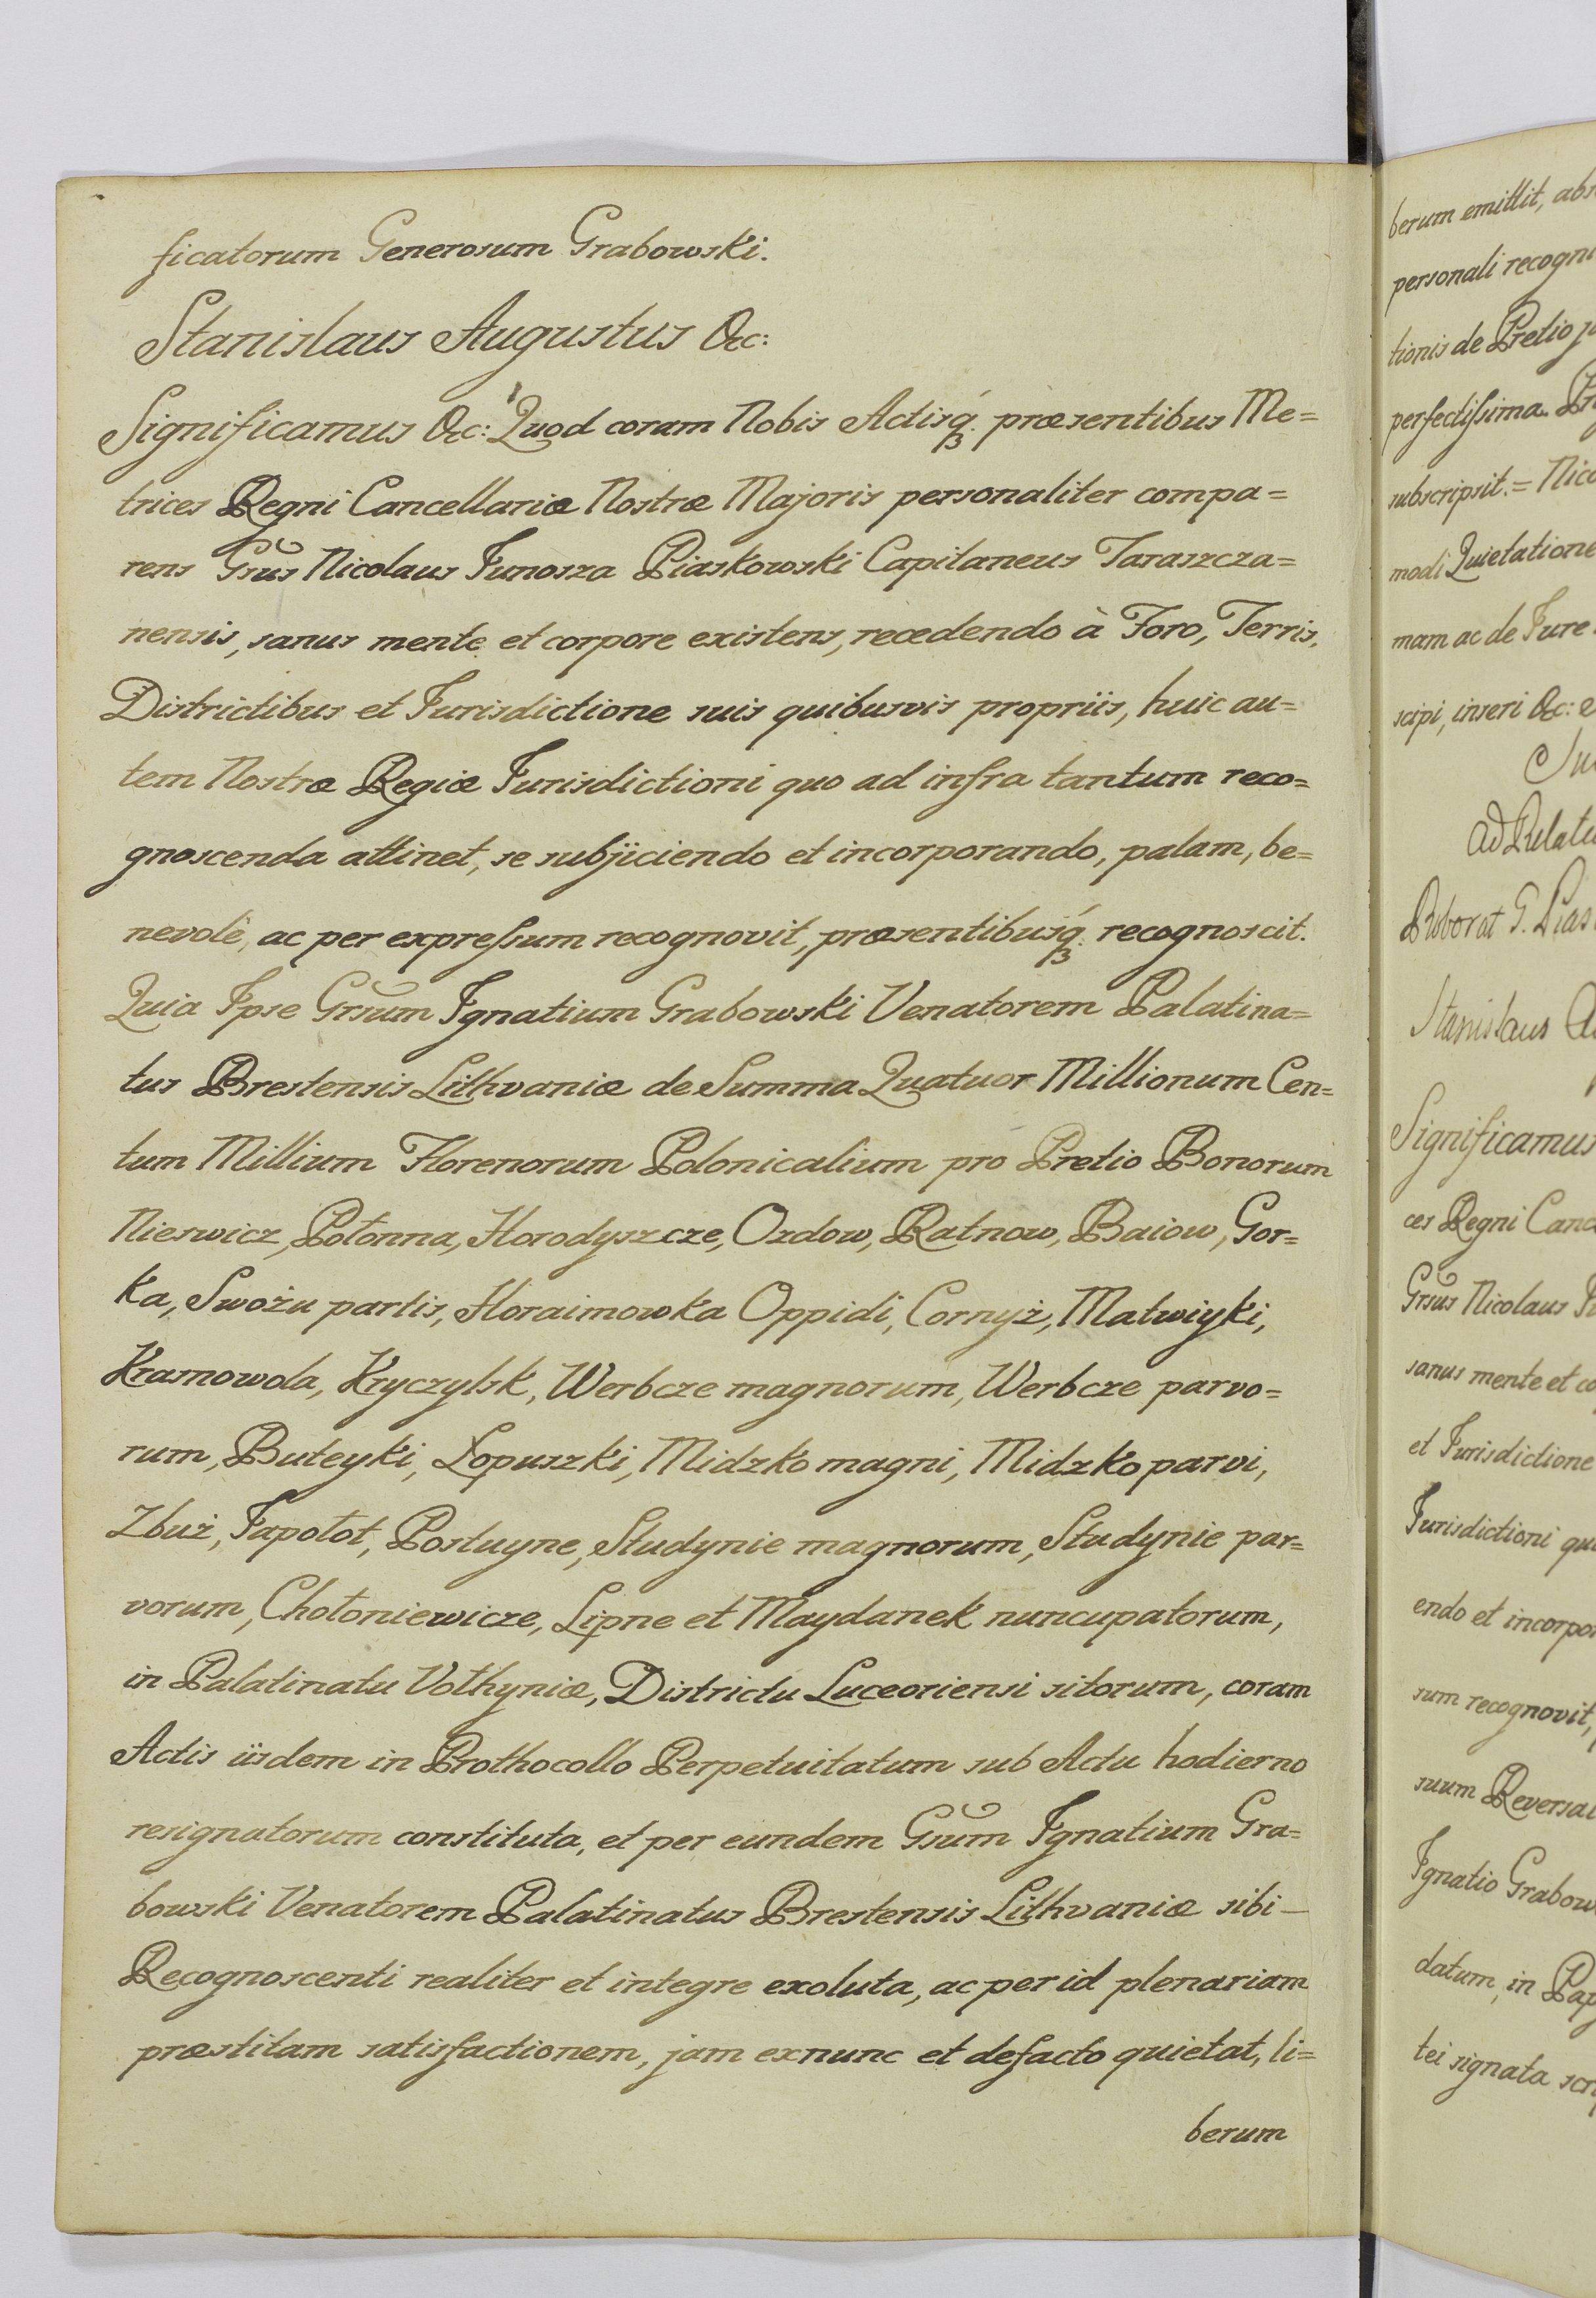 ficatorum Generosum Grabowski.
Stanislaus Augustus &c:
Significamus &c: Quod coram Nobis Actisq́ꝫ. præsentibus Me=
trices Regni Cancellariæ Nostræ Majoris personaliter compa=
rens Grsus Nicolaus Junosza Piaskowski Capitaneus Taraszcza=
nensis, sanus mente et corpore existens, recedendo à Foro, Terris,
Districtibus et Jurisdictione suis quibusvis propriis, huic au=
tem Nostræ Regiæ Jurisdictioni quo ad infra tantum reco=
gnoscenda attinet, se subjiciendo et incorporando, palam, be=
nevolè, ac per expreſsum recognovit, præsentibusq́ꝫ. recognoscit.
Quia Ipse Grsum Ignatium Grabowski Venatorem Palatina=
tus Brestensis Lithvaniæ de Summa Quatuor Millionum Cen=
tum Millium Florenorum Polonicalium pro Pretio Bonorum
Nieswicz, Połonna, Horodyszcze, Ozdow, Ratnow, Baiow, Gor=
ka, Swożu partis, Horaimowka Oppidi, Cornyż, Matwiyki,
Krasnowola, Kryczylsk, Werbcze magnorum, Werbcze parvo=
rum, Buteyki, Łopuszki, Midzko magni, Midzko parvi,
Zbuż, Japołot, Postuyne, Studynie magnorum, Studynie par=
vorum, Chołoniewicze, Lipne et Maydanek nuncupatorum,
in Palatinatu Vołhyniæ, Districtu Luceoriensi sitorum, coram
Actis iisdem in Prothocollo Perpetuitatum sub Actu hodierno
resignatorum constituta, et per eundem Gsum Ignatium Gra=
bowski Venatorem Palatinatus Brestensis Lithvaniæ sibi –
Recognoscenti realiter et integre exoluta, ac per id plenariam
præstitam satisfactionem, jam exnunc et defacto quietat, li=
berum
berum emittit,
personali recogni
tionis de Pretio
perfectiſsima.
subscripsit. = Nico
modi Quietatione
mam ac de Jure
scipi, inseri &c:
Ad Relatu
Roborat G. Pias
Stanislaus
Significamus
ces Regni Canc
Grsus Nicolaus
sanus mente et co
et Jurisdictione
Jurisdictioni
endo et incorpor
sum recognovit,
suum Reversal
Ignatio Grabow
datum, in Pap
tei signata scri